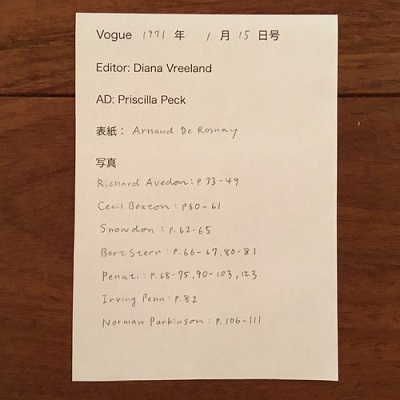 Vogue 1971 年 1 月 15 日号
Editor: Diana Vreeland
AD: Priscilla Peck
表紙: Arnaud De Rosnay
写真
Richard Avedon: p.33-49
Cecil Beaton: p60-61
Snowdon: p.62-65
Bert Stern: p.66-67, 80-81
Penati: p.68-75, 90-103, 123
Irving Penn: p.82
Norman Parkinson: p.106-111